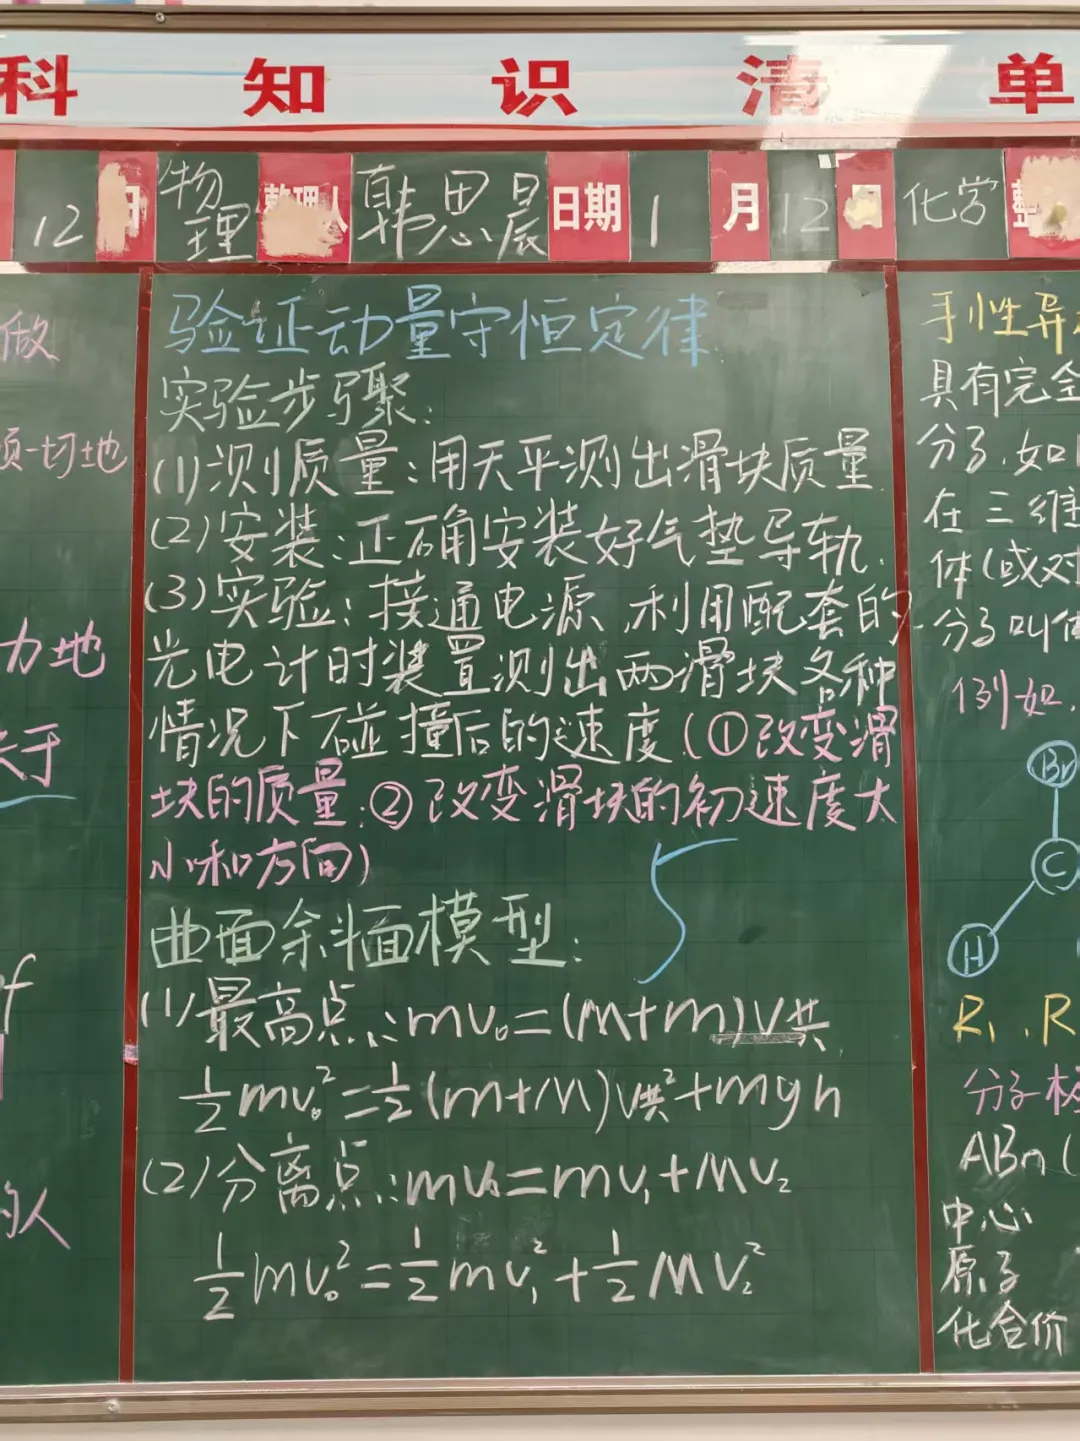 科知识清单
12 日 物理 整理人 韩思晨 日期 1 月 12 日 化学 整
做
一切地
力地
于
的人
验证动量守恒定律
实验步骤:
(1)测质量:用天平测出滑块质量.
(2)安装:正确安装好气垫导轨.
(3)实验:接通电源,利用配套的
光电计时装置测出两滑块各种
情况下碰撞后的速度(①改变滑
块的质量.②改变滑块的初速度大
小和方向)
5
曲面斜面模型:
(1)最高点:mv₀=(m+m)v共
½mv₀²=½(m+M)v共²+mgh
(2)分离点:mv₀=mv₁+Mv₂
½mv₀²=½mv₁²+½Mv₂²
手性异
具有完全
分子.如
在三维
体(或对
分子叫
例如.
Br
C
H
R₁.R
分子
ABn(
中心
原子
化合价